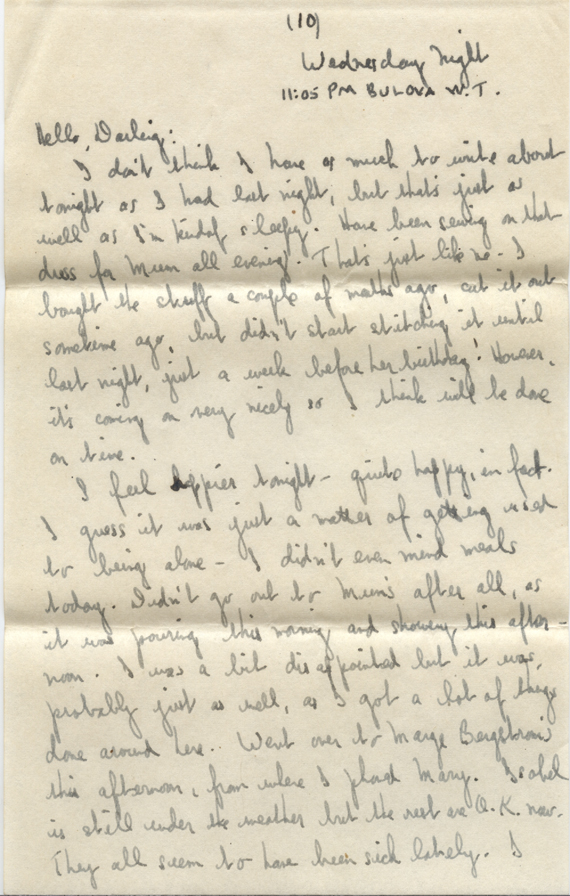 (10)
Wednesday Night
11:05 PM BULOVA W.T.
Hello, Darling:
I don't think I have as much to write about
tonight as I had last night, but that's just as
well as I'm kindof sleepy. Have been sewing on that
dress for Mum all evening. That's just like me - I
bought the stuff a couple of months ago, cut it out
sometime ago, but didn't start stitching it until
last night, just a week before her birthday! However,
it's coming on very nicely so I think will be done
on time.
I feel happier tonight - quite happy, in fact.
I guess it was just a matter of getting used
to being alone - I didn't even mind meals
today. Didn't go out to Mum's after all, as
it was pouring this morning and showery this after-
noon. I was a bit disappointed but it was,
probably just as well, as I got a lot of things
done around here. Went over to Marge Bergstrom's
this afternoon, from where I phoned Mary. Isabel
is still under the weather but the rest are O.K. now.
They all seem to have been sick lately. I